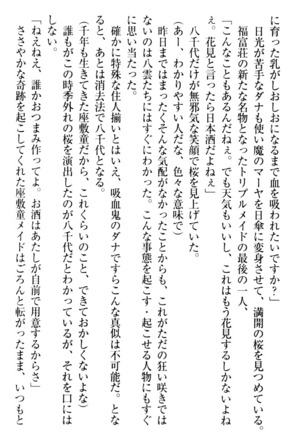 に育った乳がしおしおになるまで血を吸われたいですか？」
日光が苦手なダナも使い魔のマーヤを日傘に変身させて、満開の桜を見つめている。
福富荘の新たな名物となったトリプルメイドの最後の一人、
「こんなこともあるんだねぇ。でも天気もいいし、これはもう花見するしかないよね
ぇ。花見と言ったら日本酒だよねぇ」
八千代だけが無邪気な笑顔で桜を見上げていた。
（あー、わかりやすい人だな、色々な意味で）
昨日まではまったくそんな気配がなかったことからも、これがただの狂い咲きでは
ないのは八雲たちにはすぐにわかった。こんな事態を起こす・起こせる人物にもすぐ
に思い当たった。
確かに特殊な住人揃いとはいえ、吸血鬼のダナですらこんな真似は不可能だ。とな
ると、あとは消去法で八千代となる。
（千年も生きてきた座敷童だから、これくらいのこと、できておかしくないよな）
誰もがこの時季外れの桜を演出したのが八千代だとわかっているが、それを口には
「ねえねえ、誰かおつまみ作ってよ。お酒はあたしが自前で用意するからさ」
ささやかな奇跡を起こしてくれた座敷童メイドはごろんと転がったまま、いつもと